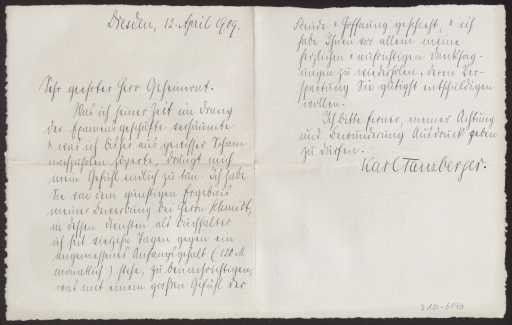 Dresden, 12. April 1909.
Sehr geehrter Herr Geheimrat.
Was ich seiner Zeit im Drang
der Examensgeschäfte versäumte
& was ich bisher aus gewisser Scham
nachzuholen zögerte, drängt mich
mein Gefühl endlich zu tun: ich habe
Sie von dem günstigen Ergebnis
meiner Bewerbung bei Herrn
in dessen Diensten als Buchhalter
ich seit vierzehn Tagen gegen ein
angemessenes Anfangsgehalt (120 M
monatlich) stehe, zu benachrichtigen,
was mit einem großen Gefühl der
Freude & Hoffnung geschieht, & ich
habe Ihnen vor allem meine
herzlichen & aufrichtigen Danksag-
ungen zu wiederholen, deren Ver-
spätung Sie gütigst entschuldigen
wollen.
Ich bitte ferner, meiner Achtung
und Bewunderung Ausdruck geben
zu dürfen.
Karl